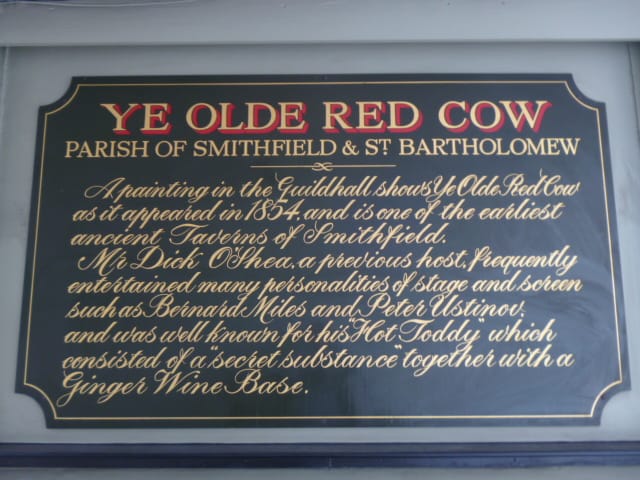 YE OLDE RED COW
PARISH OF SMITHFIELD & ST BARTHOLOMEW
A painting in the Guildhall shows 'Ye Olde Red Cow'
as it appeared in 1854, and is one of the earliest
ancient Taverns of Smithfield.
Mr Dick O'Shea, a previous host, frequently
entertained many personalities of stage and screen
such as Bernard Miles and Peter Ustinov,
and was well known for his "Hot Toddy" which
consisted of a "secret substance" together with a
Ginger Wine Base.